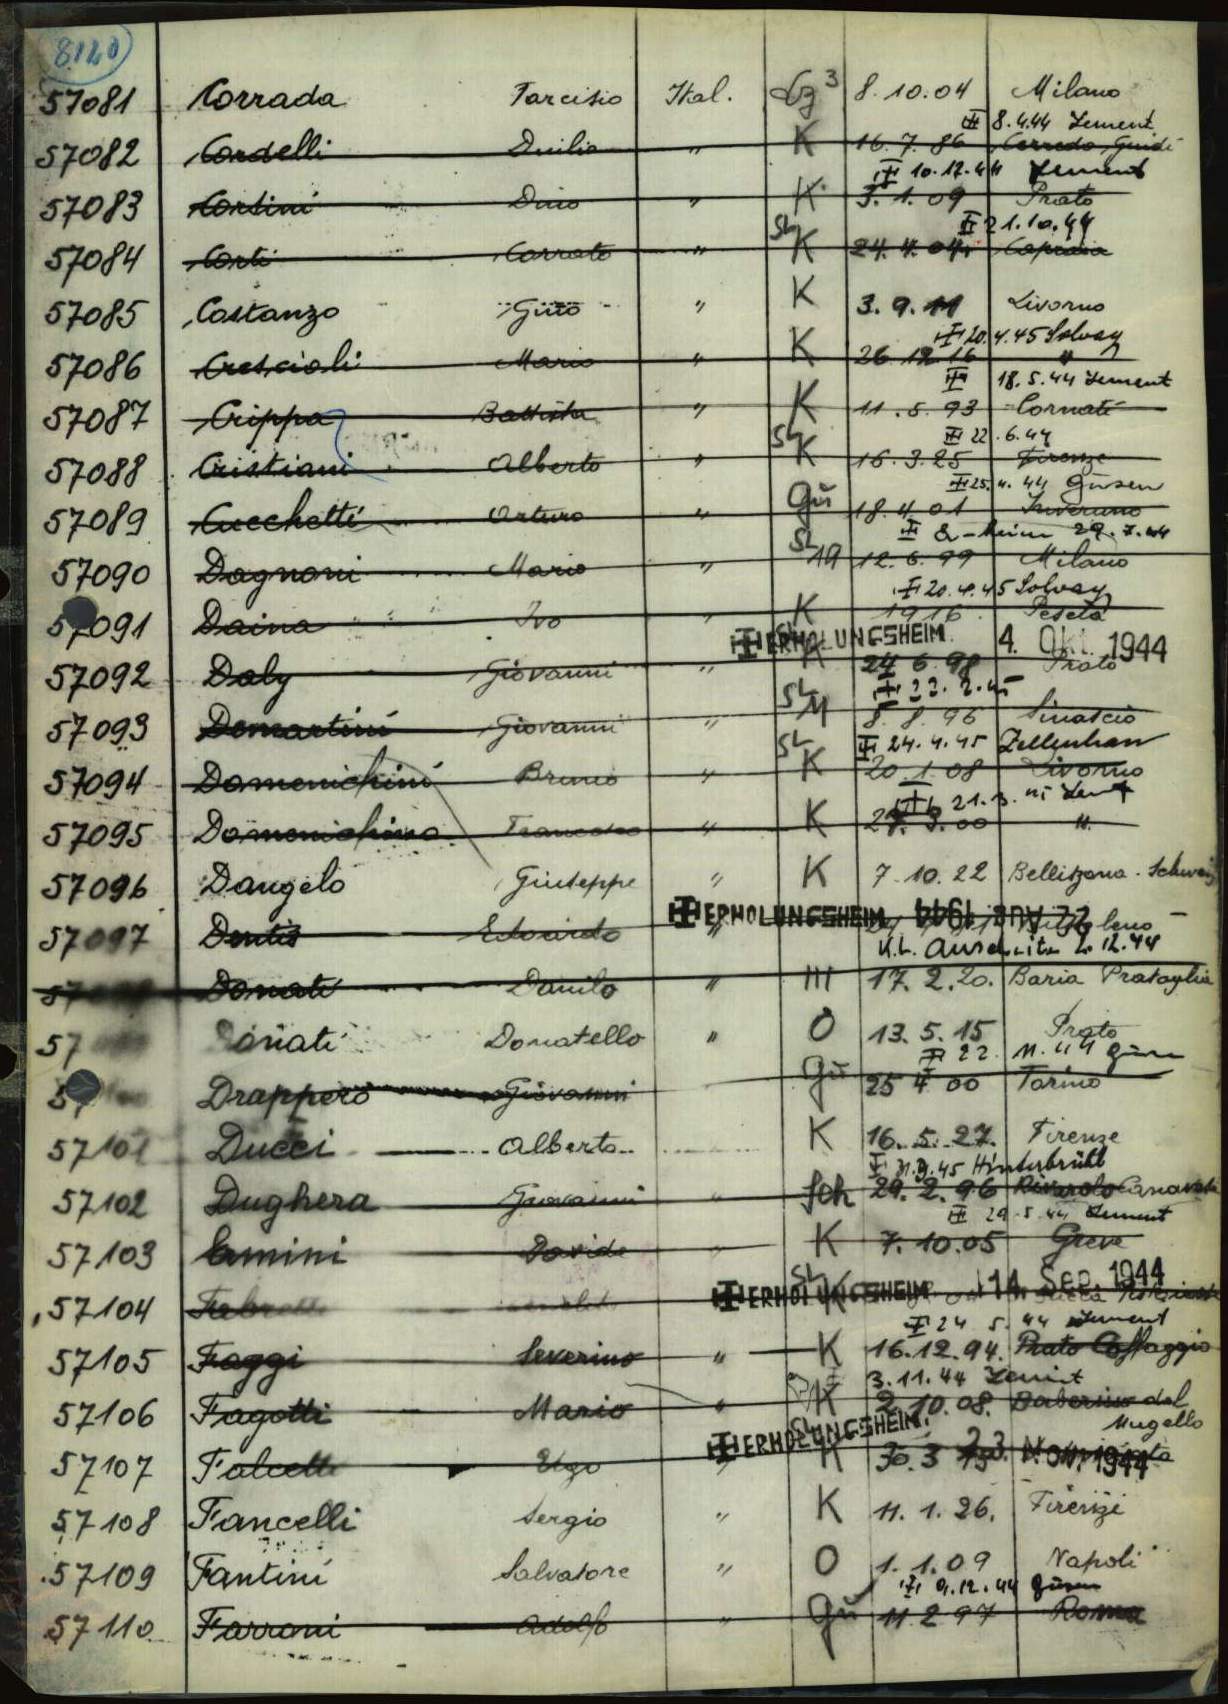 8120
57081 Corrada Tarcisio Ital. Lz3 8.10.04 Milano
8.4.44 Zement
57082 Cordelli Duilio " K 16.7.86 Cerreda Guidi
10.12.44 Zement
57083 Corsini Dino " K 3.1.09 Prato
21.10.44
57084 Corti Corrato " SL K 24.4.04 Capraia
57085 Costanzo Guto " K 3.9.11 Livorno
20.4.45 Solvay
57086 Crescioli Mario " K 26.12.16 "
18.5.44 Zement
57087 Crippa Battista " K 11.5.93 Cornati
22.6.44
57088 Cristiani Alberto " SL K 16.3.25 Firenze
25.4.44 Gusen
57089 Cucchetti Arturo " Gu 18.4.01 Inveruno
29.7.44
57090 Dagnoni Mario " SL 12.6.99 Milano
20.4.45 Solvay
57091 Daina Ivo " K 1916 Peseta
ERHOLUNGSHEIM 4. Okt. 1944
57092 Daly Giovanni " K 24.6.98 Prato
22.2.45
57093 Demartini Giovanni " SL M 8.8.96 Sinascio
24.4.45
57094 Domenichini Bruno " SL K 20.1.08 Livorno
21.3.45
57095 Domenichino Francesco " K 27.3.00 "
57096 Dangelo Giuseppe " K 7.10.22 Bellizona. Schweiz
ERHOLUNGSHEIM 22. AUG. 1944
57097 Dentis Edoardo "
K.L. Auschwitz 2.12.44
Donati Danilo " 17.2.20. Baria Prataglia
57 Donati Donatello " O 13.5.15 Prato
22.11.44 Gusen
Drappero Giovanni Gu 25 4 00 Torino
57101 Ducci Alberto K 16.5.27. Firenze
45 Hinterbrühl
57102 Dughera Giovanni " Sch 29.2.96 Rivarolo Canavese
29.5.44 Zement
57103 Emini Davide " K 7.10.05 Greve
ERHOLUNGSHEIM 14. Sep. 1944
57104 SL K
24 5. 44 Zement
57105 Faggi Severino " K 16.12.94. Prato Caffaggio
3.11.44 Zement
57106 Fagotti Mario " K 2.10.08. Barberino del
Mugello
ERHOLUNGSHEIM. 23. Nov. 1944
57107 Falcette Ugo " SL K 30.3
57108 Fancelli Sergio " K 11.1.26. Firenze
57109 Fantini Salvatore " O 1.1.09 Napoli
9.12.44 Gusen
57110 Farroni Adolfo " Gu 11 2 97 Roma